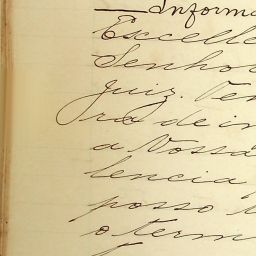 — Informa
Excelle
Senho
Juiz. Ven
ra de in
a Vossa
lencia
posso
o term